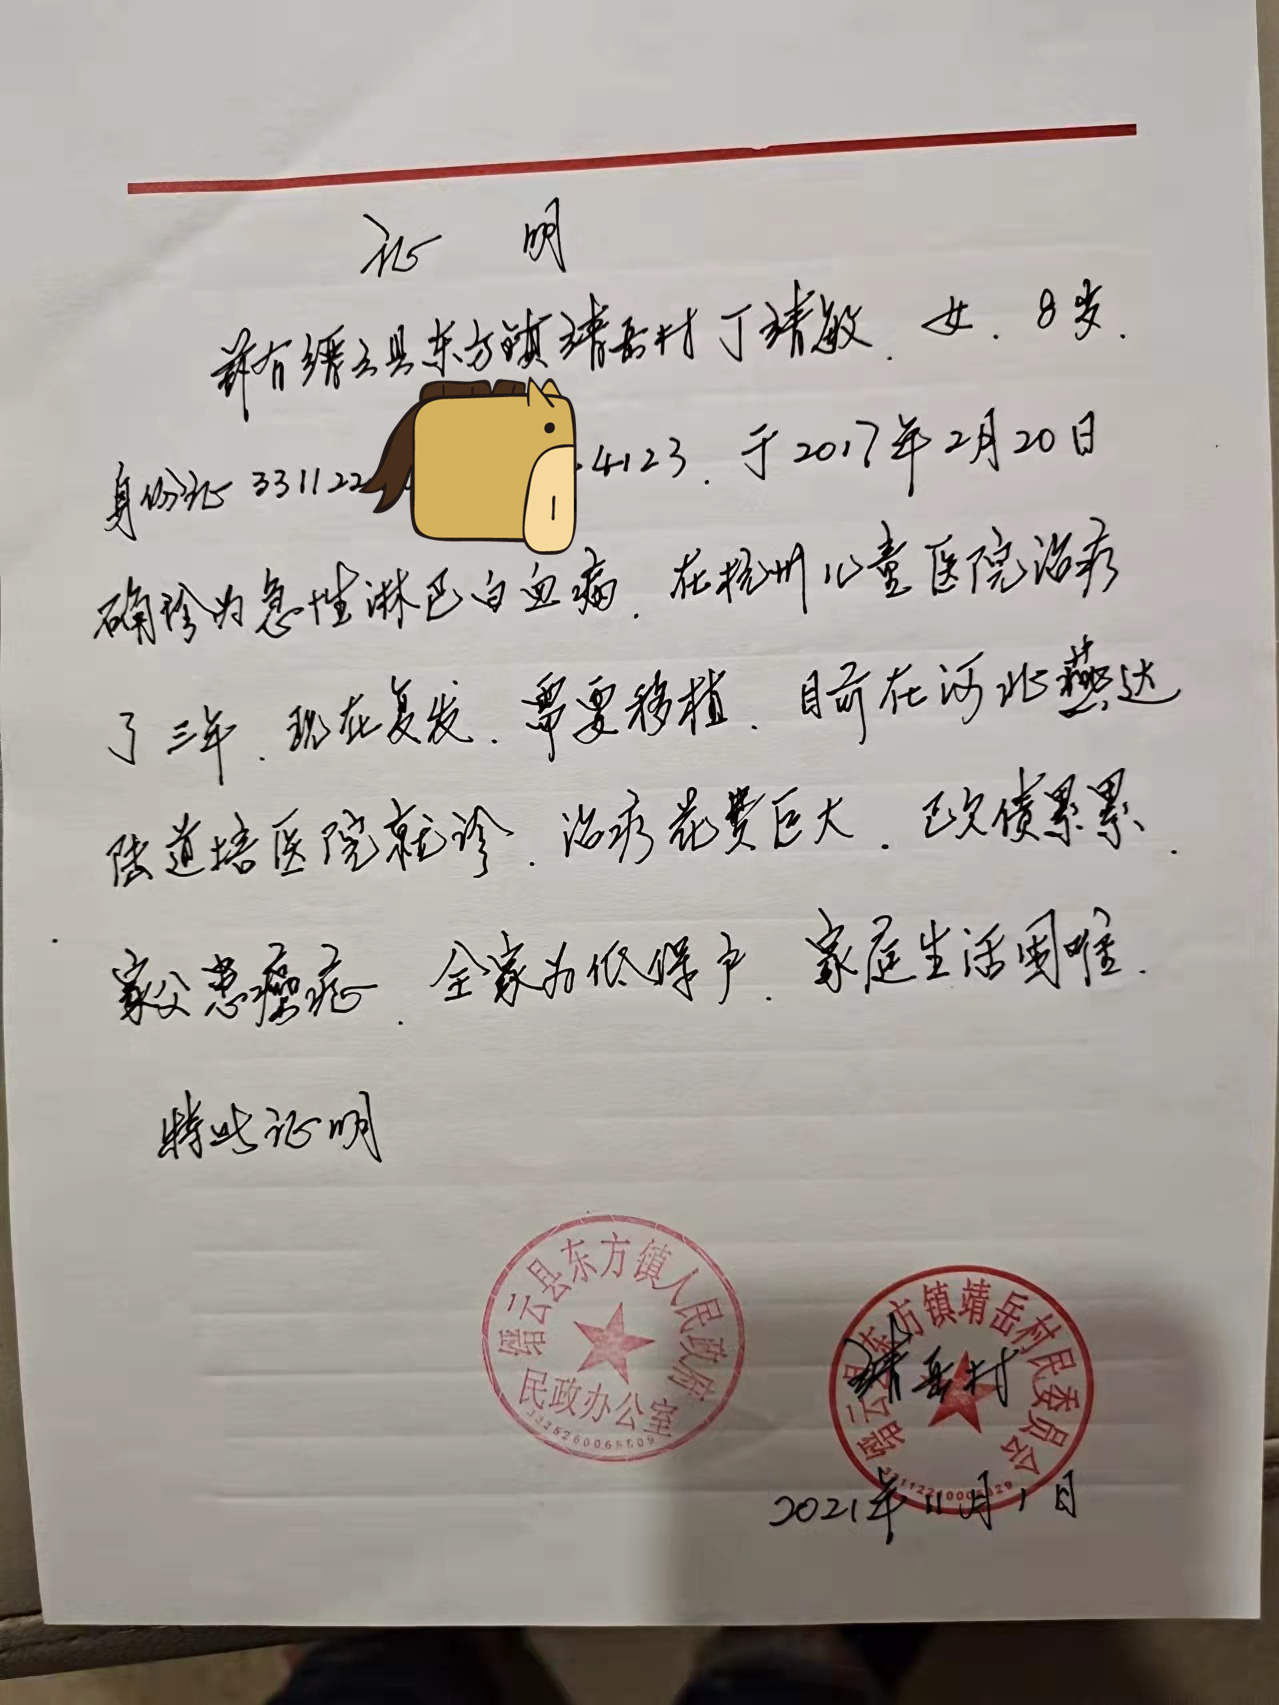 证 明
兹有缙云县东方镇靖岳村丁靖敏．女．8岁．
身份证331122 4123．于2017年2月20日
确诊为急性淋巴白血病．在杭州儿童医院治疗
了三年．现在复发．需要移植．目前在河北燕达
陆道培医院就诊．治疗花费巨大．已欠债累累．
家父患癌症．全家为低保户．家庭生活困难．
特此证明
缙云县东方镇人民政府
民政办公室
缙云县东方镇靖岳村民委员会
靖岳村
2021年11月1日